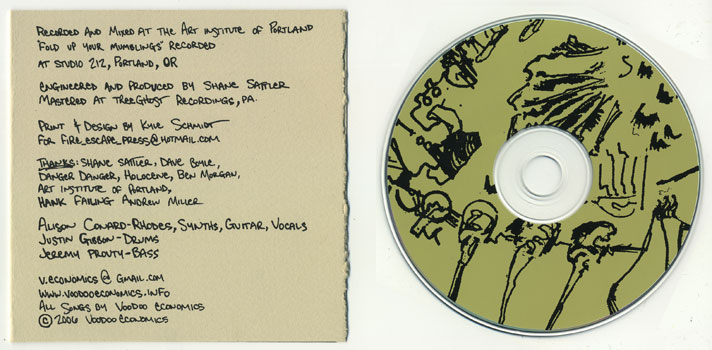 Recorded and Mixed at the Art Institute of Portland
"Fold up your mumblings" recorded
at Studio 212, Portland, OR
engineered and produced by Shane Sattler
Mastered at TreeGhost Recordings, PA.
Print & Design by Kyle Schmidt
for fire_escape_press@hotmail.com
Thanks: Shane Sattler, Dave Boyle,
Danger Danger, Holocene, Ben Morgan,
Art Institute of Portland,
Hank Failing Andrew Miller
Alison Conard-Rhodes, Synths, Guitar, Vocals
Justin Gibbon-Drums
Jeremy Prouty-Bass
v.economics@gmail.com
www.voodooeconomics.info
All Songs by Voodoo Economics
© 2006 Voodoo Economics